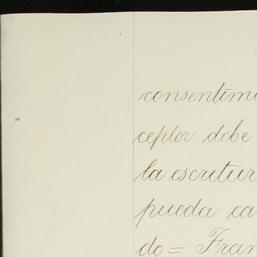 consentimi
ceptor debe
la escritur
pueda ca
do = Fran